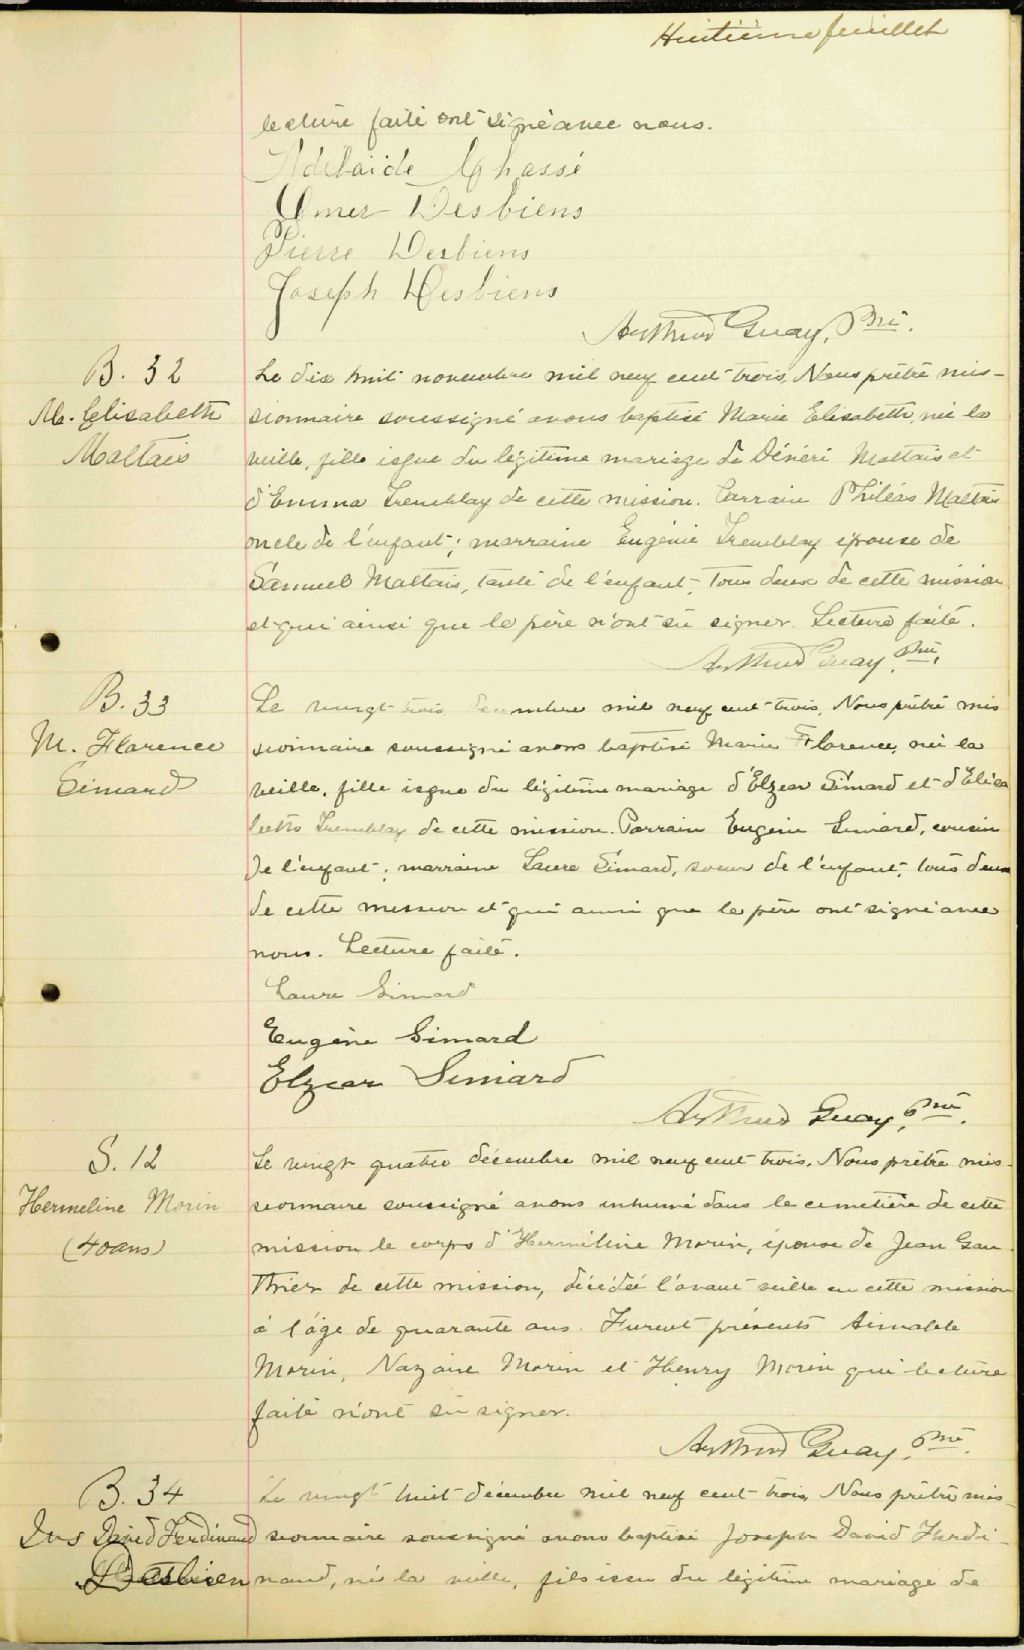 Huitième feuillet
lecture faite ont signé avec nous.
Adélaïde Chassé
Omer Desbiens
Pierre Desbiens
Joseph Desbiens
Arthur Guay, Ptre.
B. 32
M. Elisabeth
Maltais
Le dix huit novembre mil neuf cent trois, Nous prêtre mis-
sionnaire soussigné avons baptisé Marie Elisabeth, née la
veille, fille issue du légitime mariage de Maltais et
d'Emma Tremblay de cette mission. Parrain Philéas Maltais
oncle de l'enfant; marraine Eugénie Tremblay épouse de
Samuel Maltais, tante de l'enfant, tous deux de cette mission
et qui ainsi que le père n'ont su signer. Lecture faite.
Arthur Guay, Ptre.
B. 33
M. Florence
Simard
Le vingt trois décembre mil neuf cent trois, Nous prêtre mis
sionnaire soussigné avons baptisé Marie Florence, née la
veille, fille issue du légitime mariage d'Elzear Simard et
Tremblay de cette mission. Parrain Eugène Simard, cousin
de l'enfant; marraine Laure Simard, soeur de l'enfant, tous deux
de cette mission et qui ainsi que le père ont signé avec
nous. Lecture faite.
Laure Simard
Eugène Simard
Elzear Simard
Arthur Guay, Ptre.
S. 12
Hermeline Morin
(40 ans)
Le vingt quatre décembre mil neuf cent trois, Nous prêtre mis-
sionnaire soussigné avons inhumé dans le cemetière de cette
mission le corps d'Herméline Morin, épouse de Jean Gau
thier de cette mission, décédée l'avant veille en cette mission
à l'âge de quarante ans. Furent présents
Morin, Nazaire Morin et Henry Morin qui lecture
faite n'ont su signer.
Arthur Guay, Ptre.
B. 34
Jos David Ferdinand
Desbiens
Le vingt huit décembre mil neuf cent trois, Nous prêtre mis-
sionnaire soussigné avons baptisé Joseph David Ferdi-
nand, né la veille, fils issu du légitime mariage de